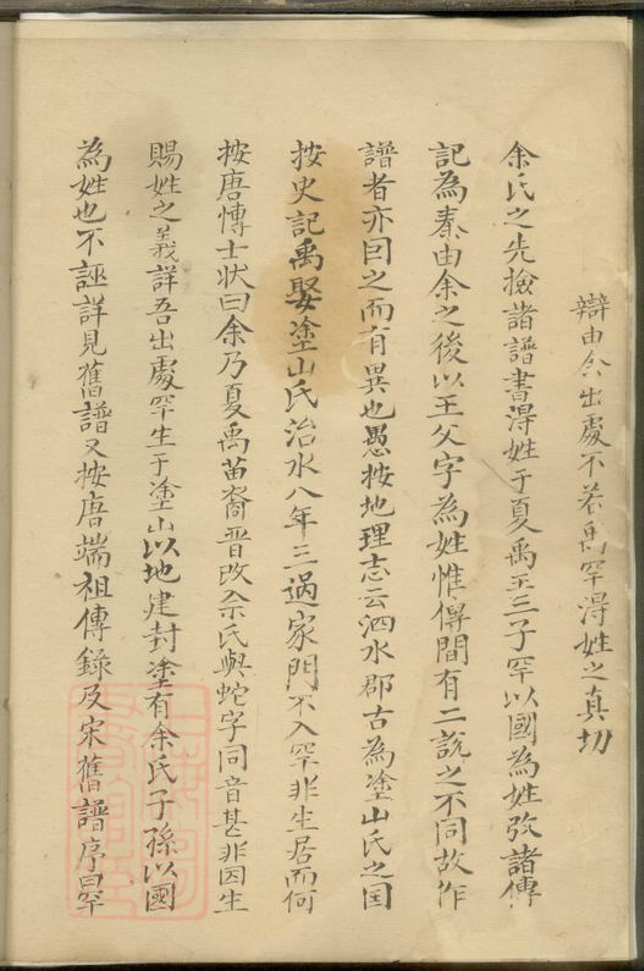 辯由余出處不若禹罕得姓之真切
余氏之先撿諸譜書得姓于夏禹王三子罕以國為姓攷諸傳
記為秦由余之後以王父字為姓惟傳間有二說之不同故作
譜者亦因之而有異也愚按地理志云泗水郡古為塗山氏之国
按史記禹娶塗山氏治水八年三過家門不入罕非生居而何
按唐愽士状曰余乃夏禹苗裔晋改佘氏與蛇字同音甚非因生
賜姓之義詳吾出處罕生于塗山以地建封塗有余氏子孫以國
為姓也不誣詳見舊譜又按唐端祖傳錄及宋舊譜序曰罕